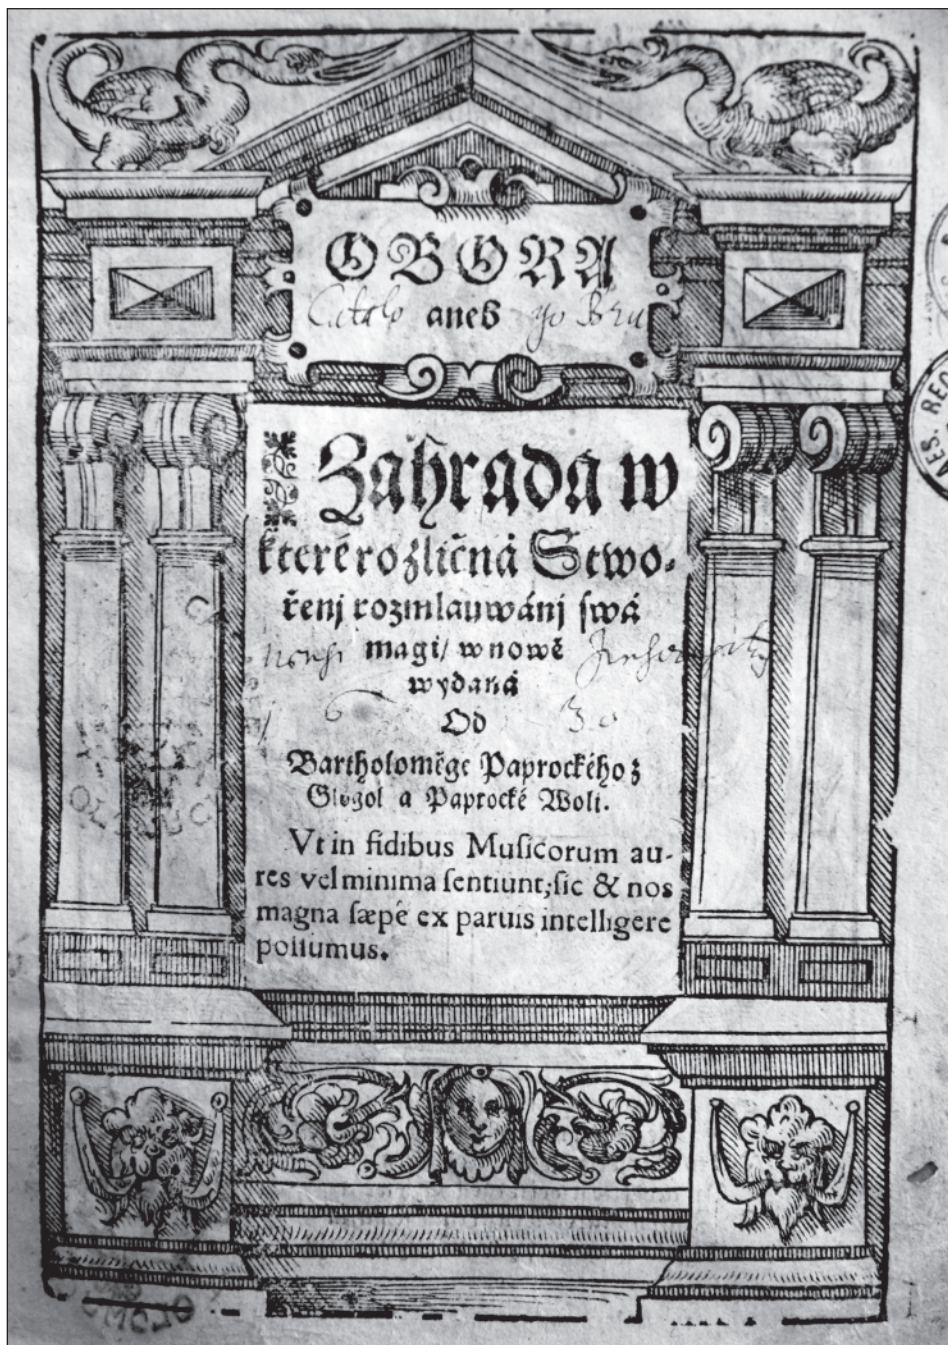 OBORA
aneb
Zahrada w
kteréž rozličná Stwo-
řenj rozmlauwánj swá
magi/ w nowě
wydaná
Od
Bartholoměge Paprockého z
Glogol a Paprocké Woli.
Vt in fidibus Muſicorum au-
res vel minima ſentiunt, ſic & nos
magna ſæpè ex paruis intelligere
poſſumus.
1630